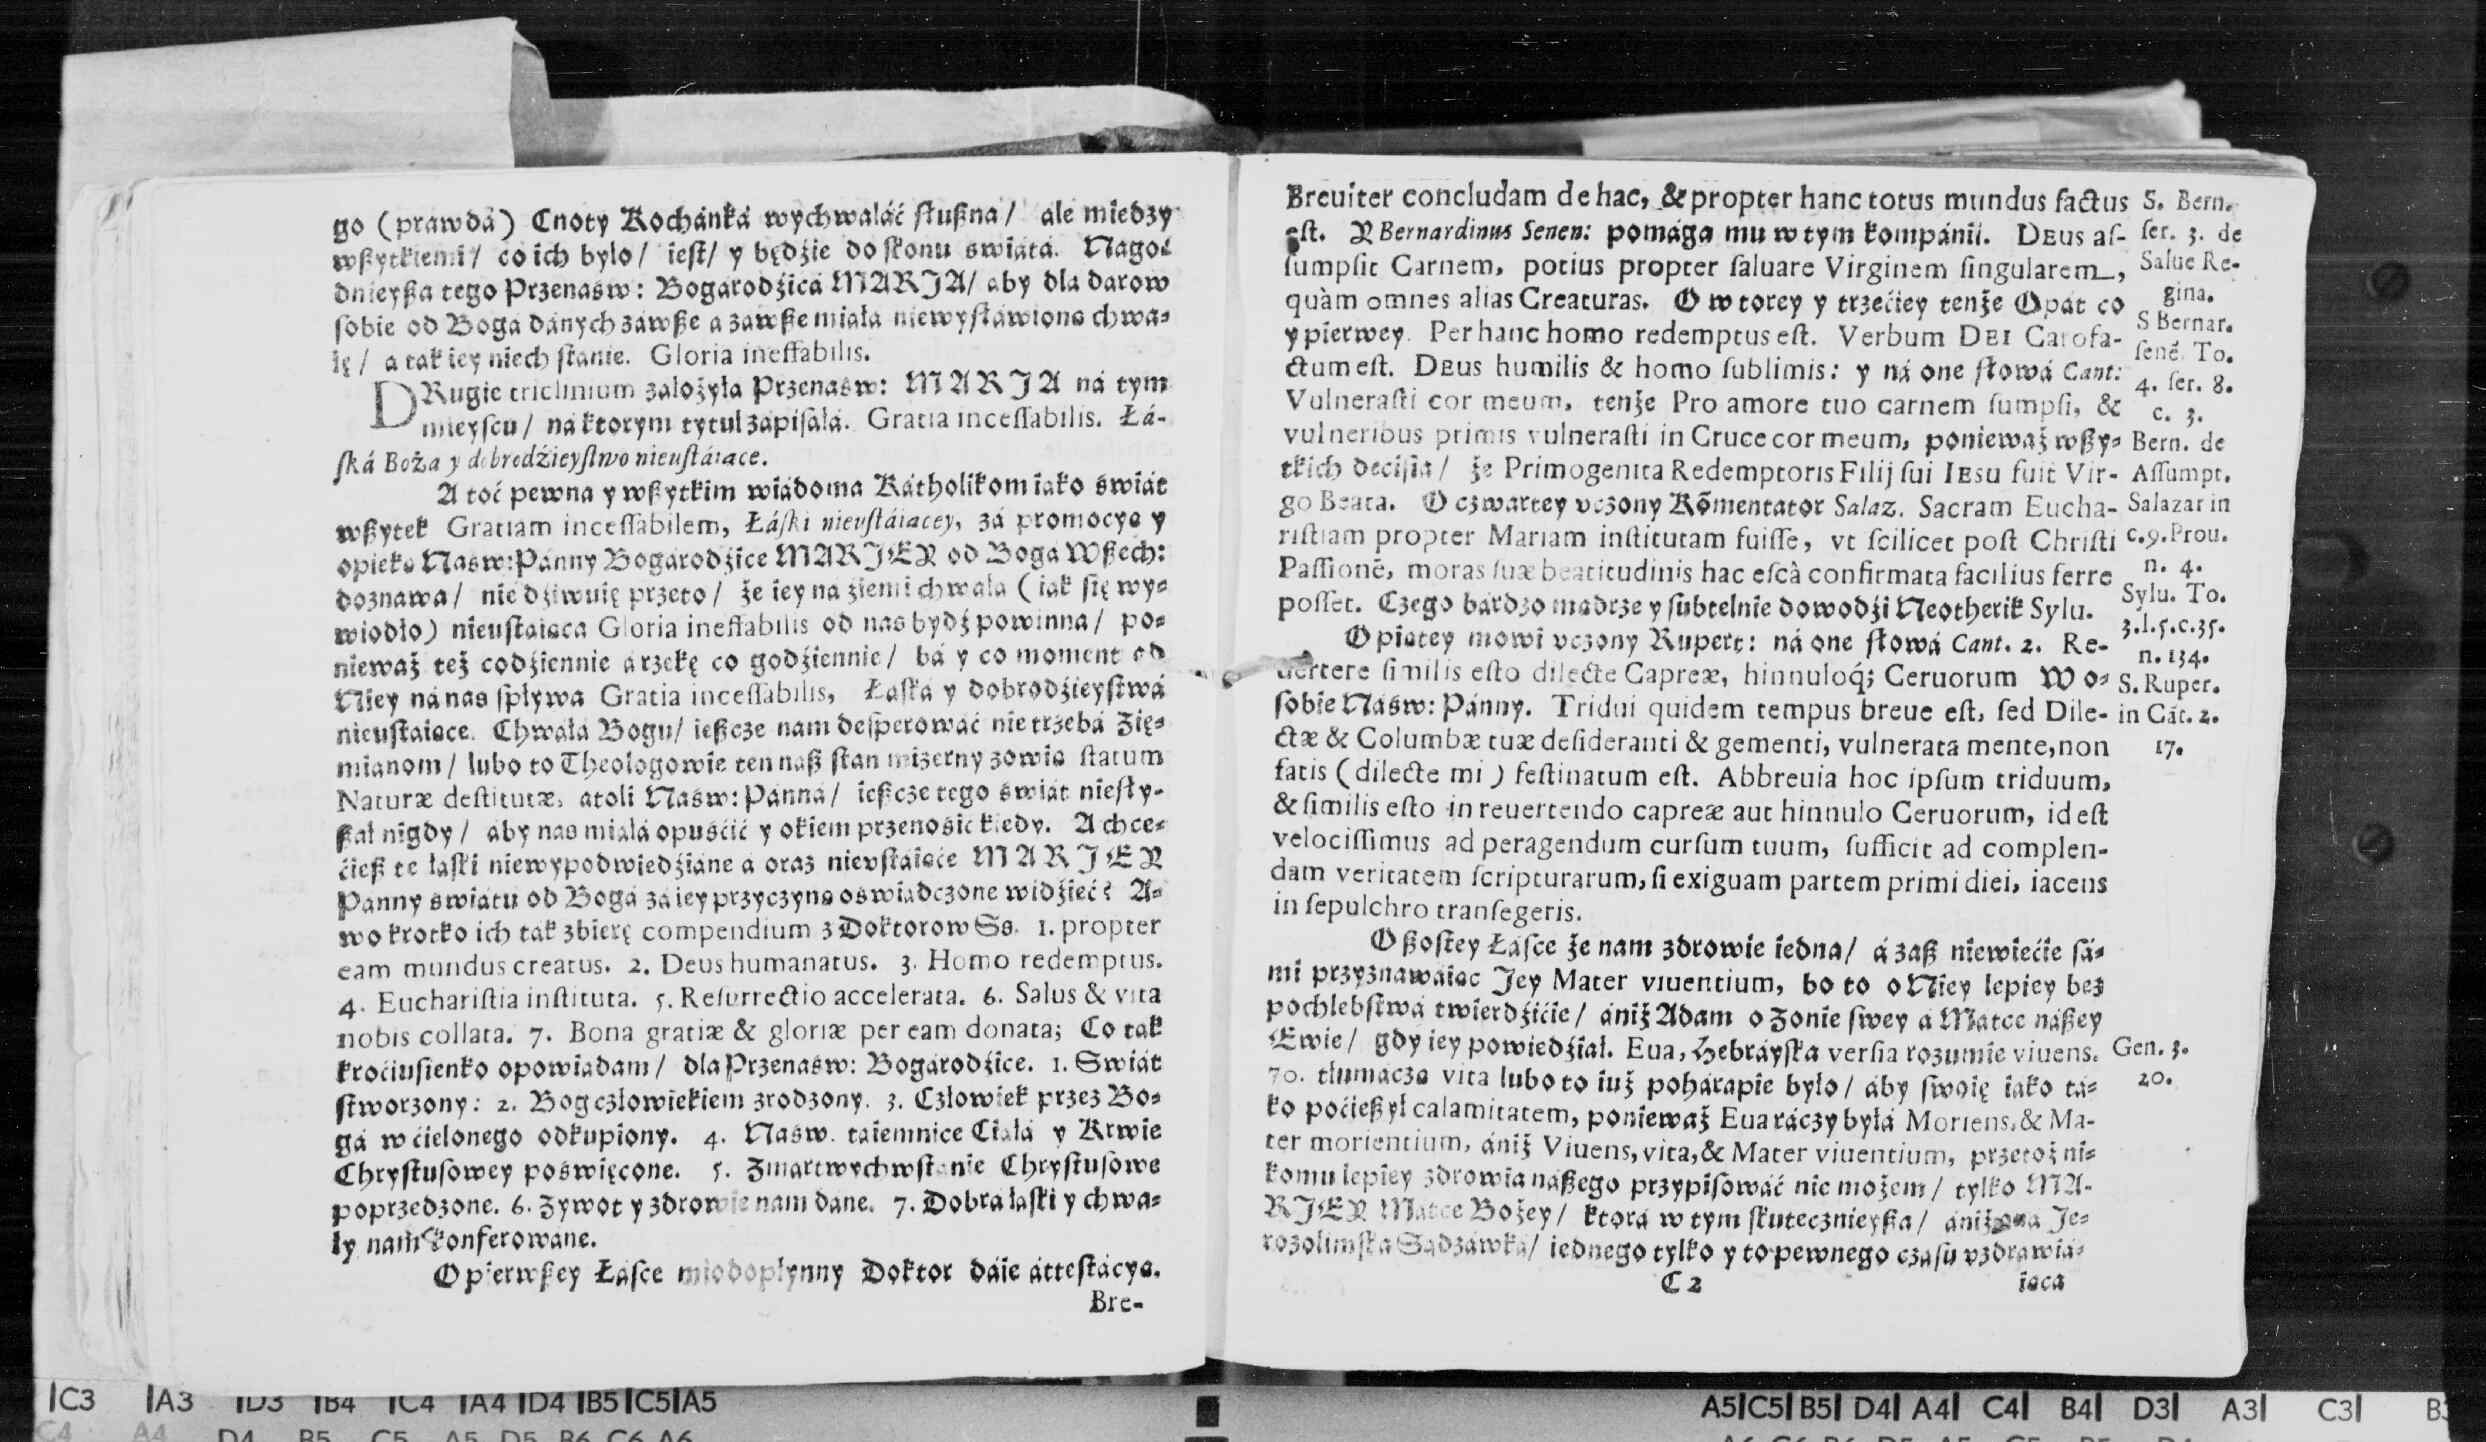 go (prawdá) Cnoty Kochánká wychwaláć słußna/ ale miedzy
wßytkiemi/ co ich było/ iest/ y będźie do skonu swiátá. Nagoł
dnieyßa tego Przenasw: Bogárodźicá MARJA/ aby dla darow
sobie od Bogá dánych záwße a záwße miáła niewysłáwioną chwa=
łę/ a tak iey niech stánie. Gloria ineffabilis.
DRugie triclinium záłożyłá Przenasw: MARJA ná tym
mieyscu/ ná ktorym tytuł zápisáłá. Gratia incessabilis. Łá-
ská Boża y dobrodźieystwo nieustáiace.
A toć pewna y wßytkim wiádoma Kátholikom iáko świát
wßytek Gratiam incessabilem, Łáski nieustáiacey, zá promocyą y
opieką Nasw: Pánny Bogárodźice MARJEY od Bogá Wßech:
doznawa/ nie dźiwuię przeto/ że iey ná źiemi chwałá (iák się wy=
wiodło) nieustáiąca Gloria ineffabilis od nas bydź powinna/ po=
nieważ też codźiennie á rzekę co godźiennie/ bá y co moment od
Niey ná nas spływa Gratia incessabilis, Łáská y dobrodźieystwá
nieustáiące. Chwałá Bogu/ ießcze nam desperowáć nie trzebá Zię=
mianom/ lubo to Theologowie ten naß stan mizerny zowią statum
Naturæ destitutæ, atoli Nasw: Pánná/ ießcze tego świát niesły-
ßał nigdy/ aby nas miáłá opuśćić y okiem przenosić kiedy. A chce=
ćieß te łáski niewypodwiedźiáne á oraz nieustáiące MARJEY
Pánny swiátu od Bogá zá iey przyczyną oswiádczone widźieć? A=
wo krotko ich ták zbierę compendium z Doktorow Ss. 1. propter
eam mundus creatus. 2. Deus humanatus. 3. Homo redemptus.
4. Eucharistia instituta. 5. Resurrectio accelerata. 6. Salus & vita
nobis collata. 7. Bona gratiæ & gloriæ per eam donata; Co ták
kroćiusienko opowiádam/ dla Przenasw: Bogárodźice. 1. Swiát
stworzony: 2. Bog człowiekiem zrodzony. 3. Człowiek przez Bo=
gá wćielonego odkupiony. 4. Nasw. táiemnice Ciáłá y Krwie
Chrystusowey poswięcone. 5. Zmartwychwstanie Chrystusowe
poprzedzone. 6. Zywot y zdrowie nam dáne. 7. Dobrá łáski y chwa=
ły nam konferowáne.
O pierwßey Łásce miodopłynny Doktor dáie áttestácyą.
Bre-
Breviter concludam de hac, & propter hanc totus mundus factus
est. Y Bernardinus Senen: pomága mu w tym kompánii. DEus as-
sumpsit Carnem, potius propter saluare Virginem singularem,
quàm omnes alias Creaturas. O wtorey y trzećiey tenże Opát co
y pierwey. Per hanc homo redemptus est. Verbum DEI Carofa-
ctum est. DEus humilis & homo sublimis: y ná one słowá Cant:
Vulnerasti cor meum, tenże Pro amore tuo carnem sumpsi, &
vulneribus primis vulnerasti in Cruce cor meum, ponieważ wßy=
tkich decisia/ że Primogenita Redemptoris Filij sui IEsu fuit Vir-
go Beata. O czwartey vczony Kõmentator Salaz. Sacram Eucha-
ristiam propter Mariam institutam fuisse, vt scilicet post Christi
Passionē, moras suæ beatitudinis hac escâ confirmata facilius ferre
posset. Czego bárdzo mądrze y subtelnie dowodźi Neotherik Sylu.
O piątey mowi vczony Rupert: ná one słowá Cant. 2. Re-
uertere similis esto dilecte Capreæ, hinnuloq́; Ceruorum W o=
sobie Nasw: Pánny. Tridui quidem tempus breue est, sed Dile-
ctæ & Columbæ tuæ desideranti & gementi, vulnerata mente, non
satis (dilecte mi) festinatum est. Abbreuia hoc ipsum triduum,
& similis esto in reuertendo capreæ aut hinnulo Ceruorum, id est
velocissimus ad peragendum cursum tuum, sufficit ad complen-
dam veritatem scripturarum, si exiguam partem primi diei, iacens
in sepulchro transegeris.
O ßostey Łásce że nam zdrowie iedna/ á zaß niewiećie sá=
mi przyznawáiąc Jey Mater viuentium, bo to o Niey lepiey bez
pochlebstwá twierdźićie/ ániż Adam o Zonie swey á Mátce náßey
Ewie/ gdy iey powiedźiał. Eua, Hebráyska versia rozumie viuens.
70. tłumáczą vita lubo to iuż po hárapie było/ áby swoię iáko tá=
ko poćießył calamitatem, ponieważ Eua ráczy byłá Moriens, & Ma-
ter morientium, ániż Viuens, vita, & Mater viuentium, przetoż ni=
komu lepiey zdrowia náßego przypisowáć nie możem/ tylko MA-
RJEY Mátce Bożey/ ktora w tym skutecznieyßa/ ániż ona Je=
rozolimska Sádzawká/ iednego tylko y to pewnego czásu vzdrawiá=
C 2
iąca
S. Bern.
ser. 3. de
Salue Re-
gina.
S Bernar.
senē. To.
4. ser. 8.
c. 3.
Bern. de
Assumpt.
Salazar in
c.9.Prou.
n. 4.
Sylu. To.
3.l.5.c.35.
n. 134.
S. Ruper.
in Cāt. 2.
17.
Gen. 3.
20.
|C3 |A3 |D3 |B4 |C4 |A4 |D4 |B5 |C5|A5
A5|C5| B5| D4| A4| C4| B4| D3| A3| C3|